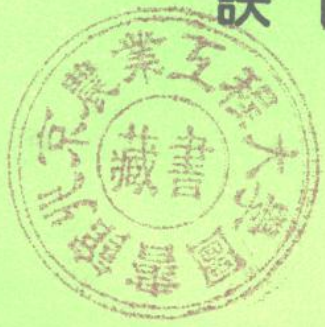 北京農業工程大學圖書館
藏書